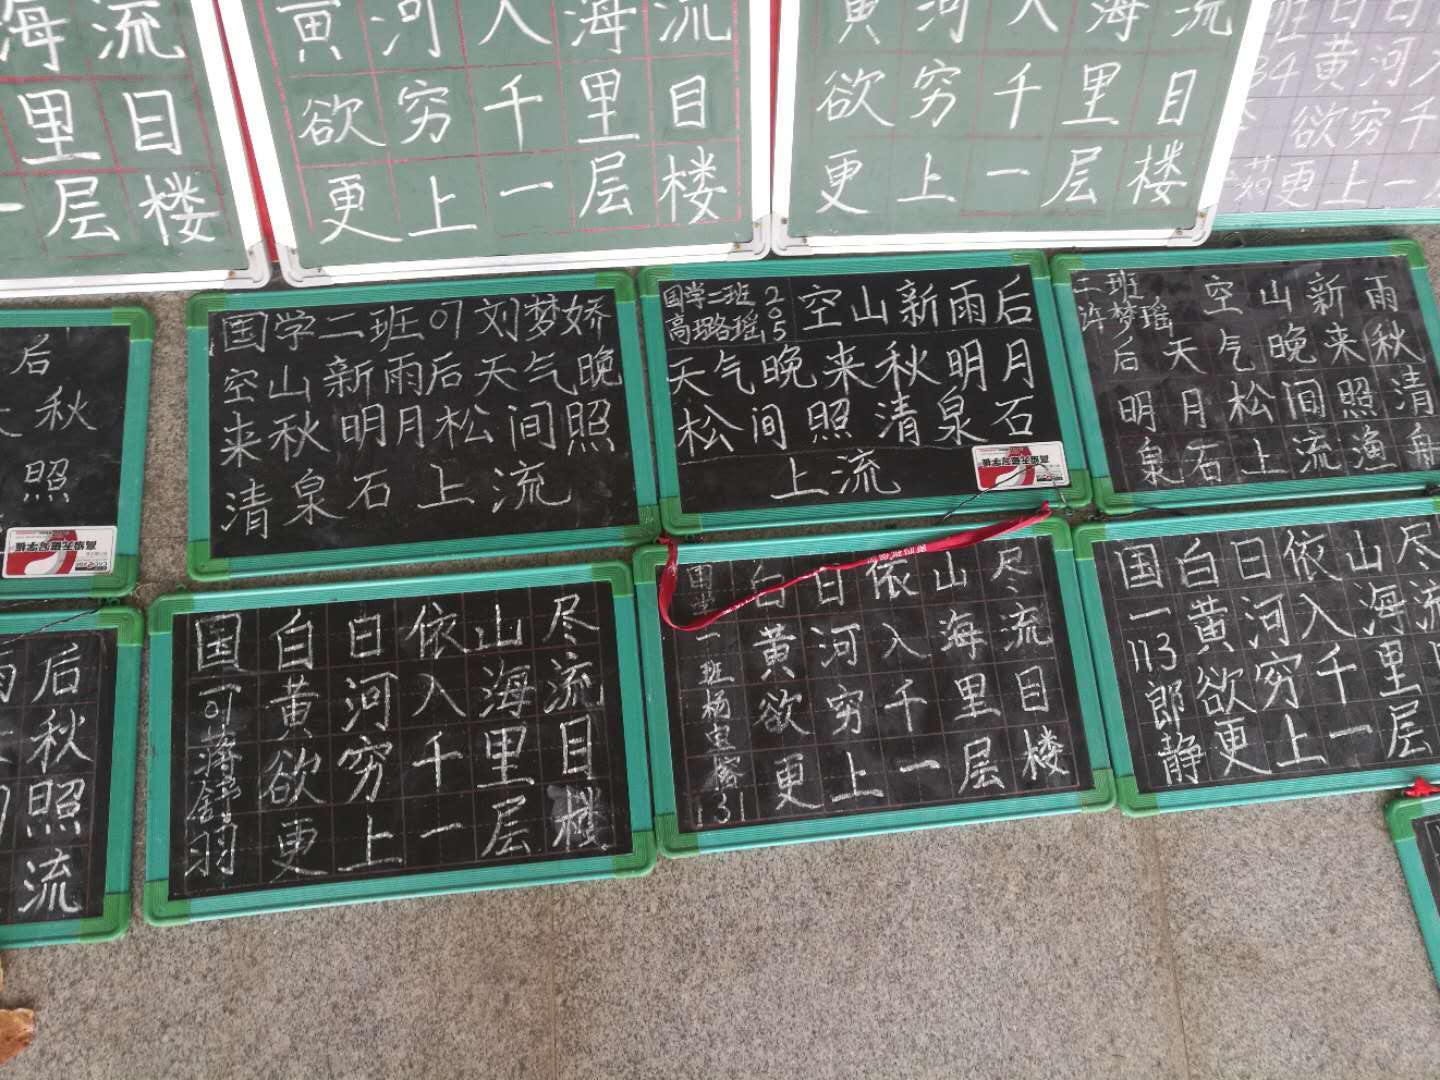 海流
里目
一层楼
黄河入海流
欲穷千里目
更上一层楼
黄河入海流
欲穷千里目
更上一层楼
班白日
34黄河入
欲穷千
更上一
后
秋
照
国学二班07刘梦娇
空山新雨后天气晚
来秋明月松间照
清泉石上流
国学二班
高璐瑶
205
空山新雨后
天气晚来秋明月
松间照清泉石
上流
二班
许梦瑶
空山新雨
后天气晚来秋
明月松间照清
泉石上流渔舟
雨后
秋
照
流
国白日依山尽
黄河入海流
欲穷千里目
更上一层楼
羽
白日依山尽
黄河入海流
欲穷千里目
更上一层楼
一班杨
131
国一113郎静
白日依山尽
黄河入海流
欲穷千里
更上一层